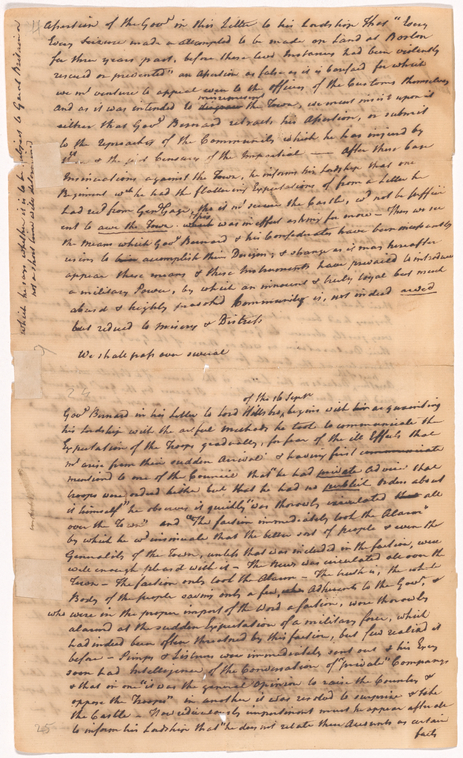 Assertion of the Govr in this Letter to his Lordship That "every
Every Seizure made or attempted to be made on Land at Boston
for three years past, before these two Instances had been violently
rescued or prevented" an Assertion as false as it is barefaced for which
we will venture to appeal even to the officers of the Customs themselves
And as it was intended to the Town, we must insist upon it
misrepresent
either that Govr Bernard retracts his Assertion, or submit
to the reproaches of the Community which he has injured by
it, & the just Censures of the Impartial — After these base
Insinuations against the Town, he informs his Lordship that one
Regiment wch he had the flattering Expectations of from a Letter he
had recd from Genl Gage, tho it wd secure the Castle, wd not be suffici
ent to awe the Town. this was in effect asking for more — Thus we see
the Means which Govr Bernard & his Confederates have been incessantly
using to accomplish their Designs; & strange as it may hereafter
appear these means & these Instruments have prevailed to introduce
a military Power, by which an innocent & truly loyal but much
abused & highly Community is, not indeed awed
but reduced to misery & Distress
We shall pass over several
of the 16 Sept
Govr Bernard in his Letter to Lord Hillsbo, begins with acquainting
his Lordship with the artful methods he took to communicate the
Expectation of the Troops gradually, for fear of the ill Effects that
mt arise from their sudden Arrival & having first
mentiond to one of the Council that "he had private Advice that
troops were orderd hither but that he had no publick Orders about
it himself" he observes it quickly "was thoroly circulated all
over the Town" and "The faction immediately took the Alarm"
by which he wd insinuate that the better sort of people & even the
Generality of the Town, unless that was included in the faction, were
well enough pleasd with it — The News was circulated all over the
Town — The faction only took the Alarm — The truth is, the whole
Body of the people saving only a few, Adherents to the Govr, &
who were in the proper import of the Word a faction, were thoroly
alarmd at the sudden Expectation of a military force, which
had indeed been often threatned by this faction, but few realizd it
before — Pimps & Listners were immediately sent out & his Excy
soon had Intelligence of the Conversation of "private" Company
& that in one "it was the general Opinion to raise the Country &
oppose the Troops" in another it was resolvd to surprize & take
the Castle — How ridiculously impertinent must he appear after all
to inform his Lordship that "he does not relate these Accounts as certain
facts
which he says whether it is to be obliged to Genl
not a short time will determine
25